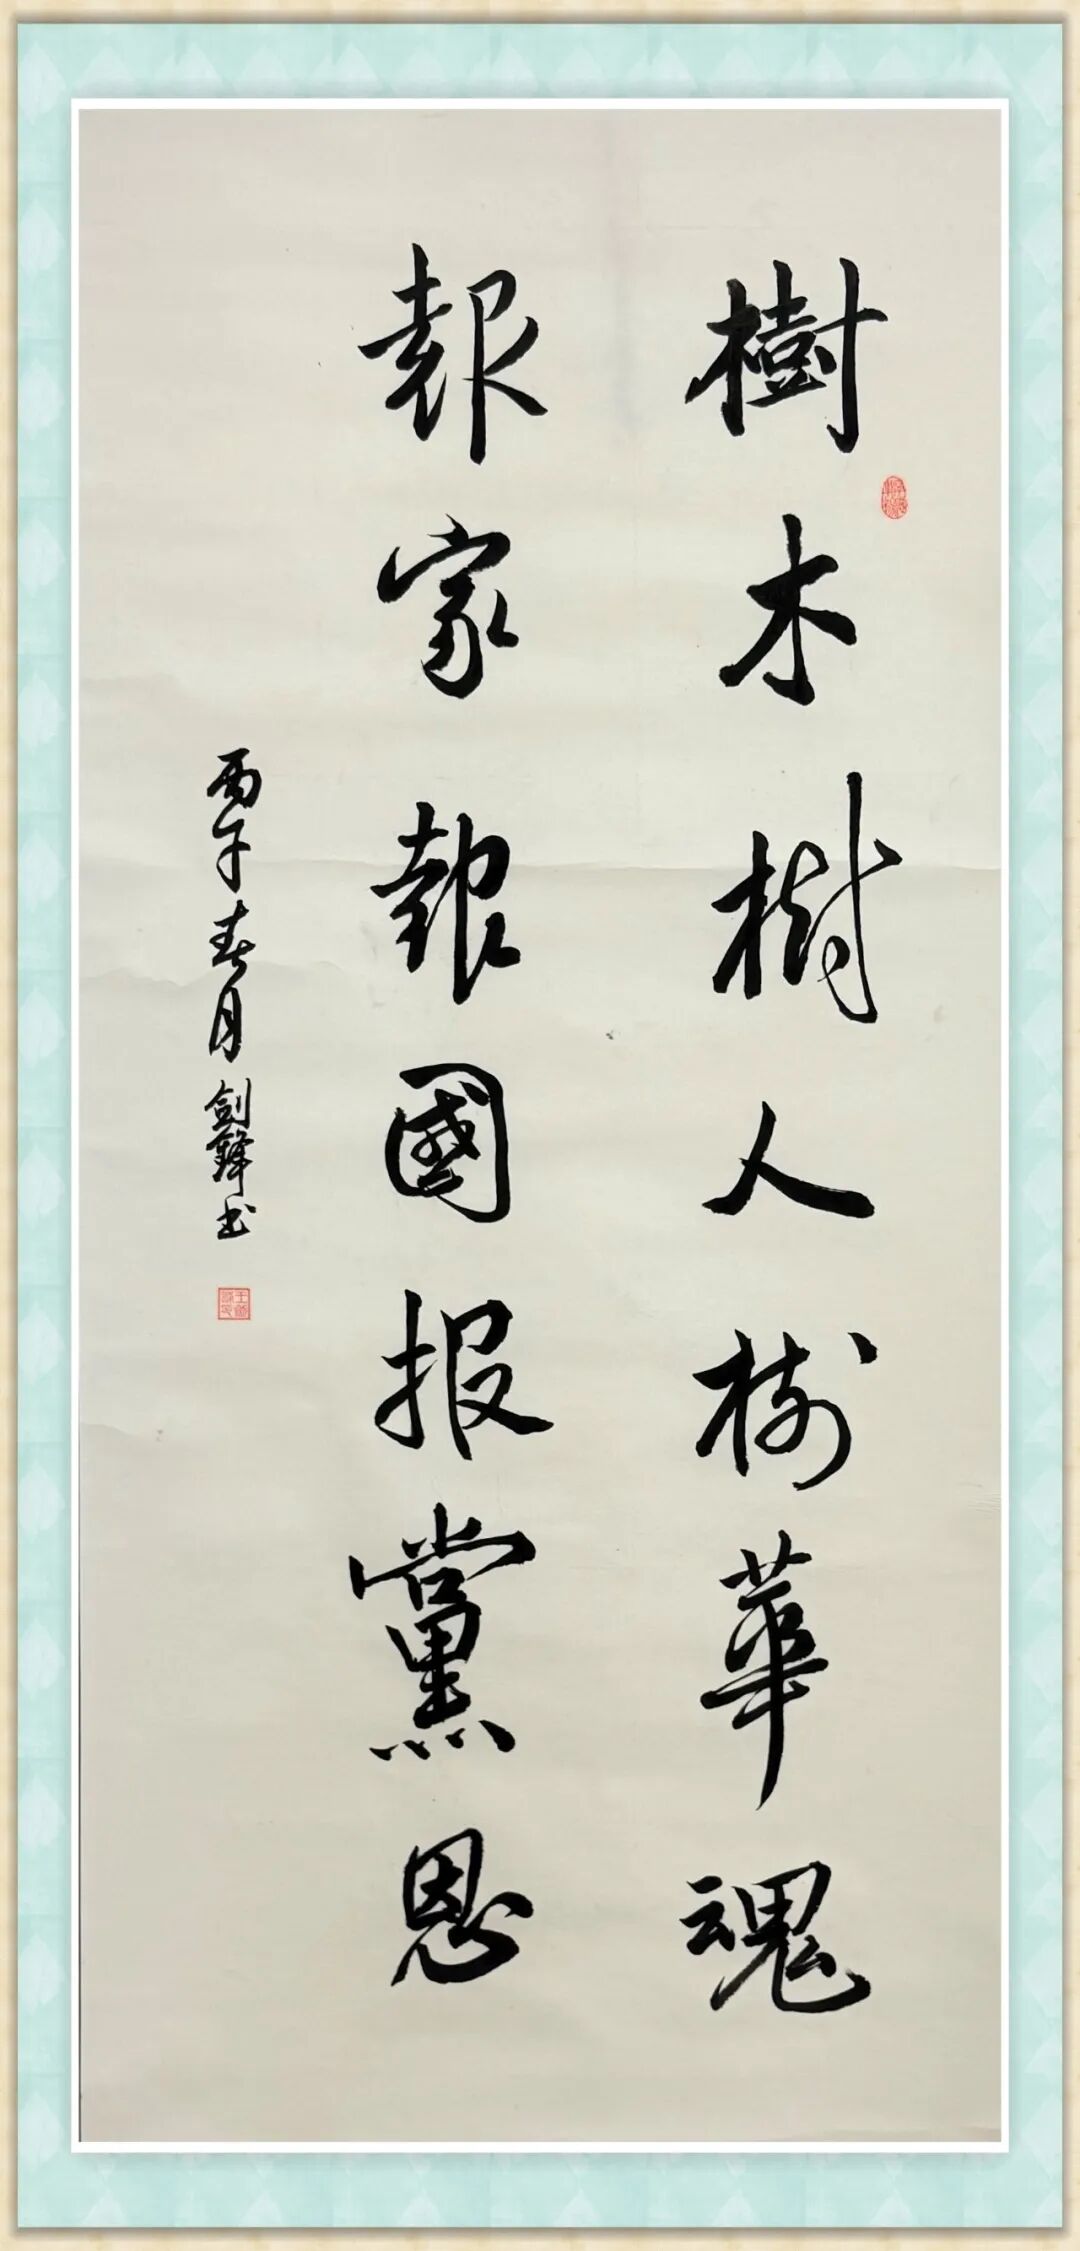 樹木樹人樹華魂
報家報國报黨恩
丙午春月剑鋒书